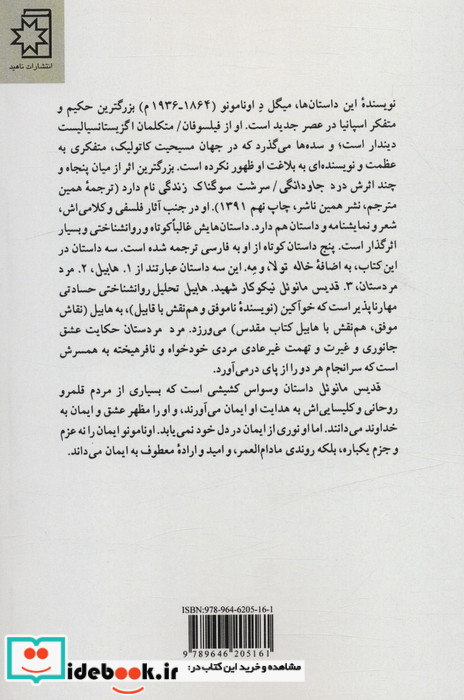 انتشارات ناهید
نویسندهٔ این داستان‌ها، میگل دِ اونامونو (۱۸۶۴-۱۹۳۶ م) بزرگترین حکیم و
متفکر اسپانیا در عصر جدید است. او از فیلسوفان/ متکلمان اگزیستانسیالیست
دیندار است؛ و سده‌ها می‌گذرد که در جهان مسیحیت کاتولیک، متفکری به
عظمت و نویسنده‌ای به بلاغت او ظهور نکرده است. بزرگترین اثر از میان پنجاه و
چند اثرش درد جاودانگی/ سرشت سوگناک زندگی نام دارد (ترجمهٔ همین
مترجم، نشر همین ناشر، چاپ نهم ۱۳۹۱). او در جنب آثار فلسفی و کلامی‌اش،
شعر و نمایشنامه و داستان هم دارد. داستان‌هایش غالباً کوتاه و روانشناختی و بسیار
اثرگذار است. پنج داستان کوتاه از او به فارسی ترجمه شده است. سه داستان در
این کتاب، به اضافهٔ خاله تولا، و مِه. این سه داستان عبارتند از ۱. هابیل، ۲. مرد
مردستان، ۳. قدیس مانوئل نیکوکار شهید. هابیل تحلیل روانشناختی حسادتی
مهارناپذیر است که خوآکین (نویسندهٔ ناموفق و هم‌نقش با قابیل)، به هابیل (نقاش
موفق، هم‌نقش با هابیل کتاب مقدس) می‌ورزد. مرد مردستان حکایت عشق
جانوری و غیرت و تهمت غیرعادی مردی خودخواه و نافرهیخته به همسرش
است که سرانجام هر دو را از پای درمی‌آورد.
قدیس مانوئل داستان وسواس کشیشی است که بسیاری از مردم قلمرو
روحانی و کلیسایی‌اش به هدایت او ایمان می‌آورند، و او را مظهر عشق و ایمان به
خداوند می‌دانند. اما او نوری از ایمان در دل خود نمی‌یابد. اونامونو ایمان را نه عزم
و جزم یکباره، بلکه روندی مادام‌العمر، و امید و ارادهٔ معطوف به ایمان می‌داند.
ISBN: 978-964-6205-16-1
9789646205161
مشاهده و خرید این کتاب در:
idebook.ir